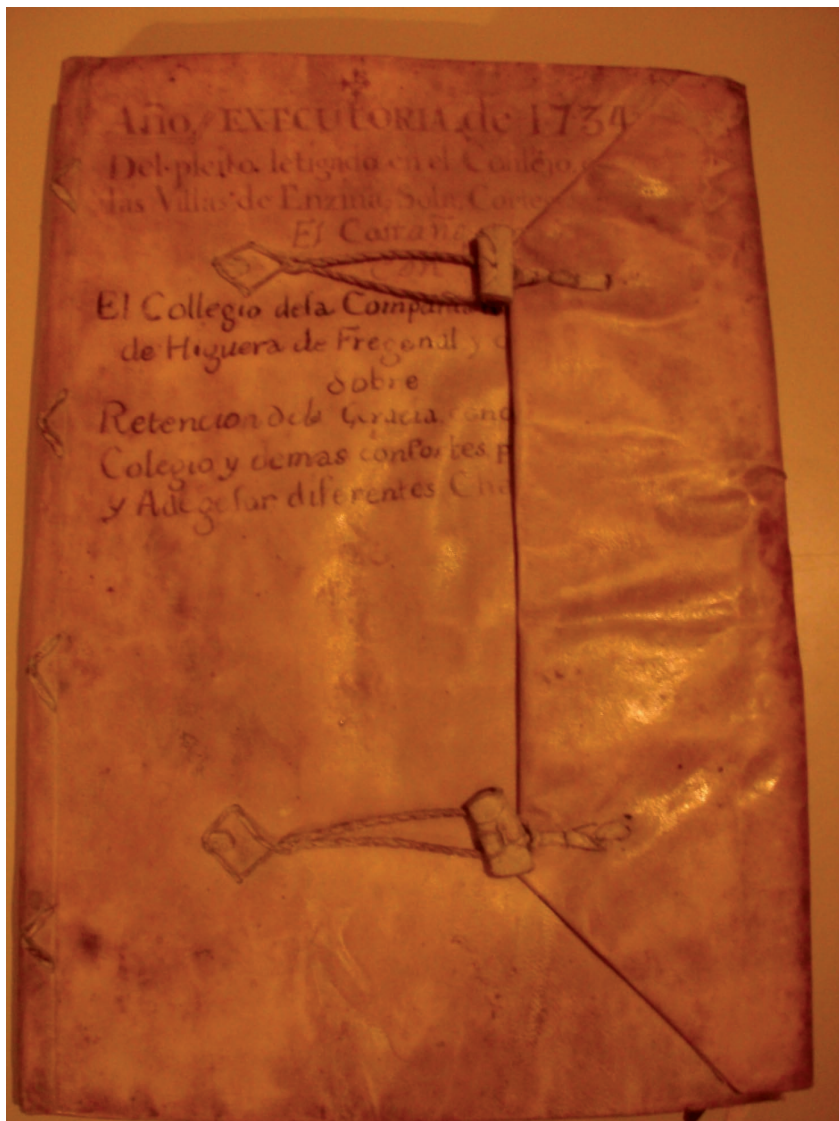 Año, EXECUTORIA, de 1734
Del pleito letigado en el Consejo,
las Villas de Enzina, Sola, Corte
El Castaño
Con
El Collegio dela Compania
de Higuera de Fregenal y
sobre
Retencion dela Gracia, conc
Colegio y demas consortes p
y Adegesar diferentes Cha